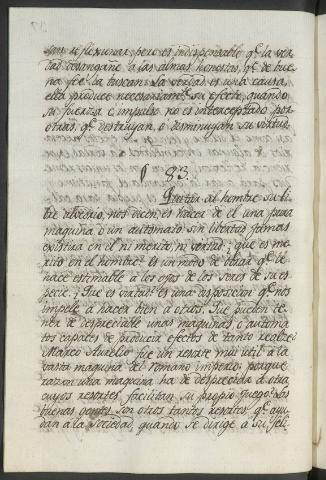 reflexionar; pero es indispensable q.e la ver-
dad desengañe à las almas honestas, q.e de bue-
na fee la buscan. La verdad es una causa,
ella produce necesariam.te su efecto, quando
su fuerza è impulso no es interceptado por
otras q.e destruyan, ò disminuyan su virtud.
§ 83.
Quitar al hombre su li-
bre alvedrio, nos dicen, es hacer de el una pura
maquina ò un automato: sin libertad jamas
existirà en el ni merito, ni virtud; ¿que es me-
rito en el hombre? es un modo de obrar q.e le
hace estimable à los ojos de los seres de su es-
pecie. ¿Que es virtud? es una disposicion q.e nos
impele à hacer bien à otros. ¿Que pueden te-
ner de despreciable unas maquinas ò automa-
tos capaces de producir efectos de tanto realze?
Marco Aurelio fue un resorte mui util à la
vasta maquina del romano imperio: porque
razon una maquina ha de despreciar à otra
cuyos resortes facilitan su propio juego? Las
buenas gentes son otros tantos resortes q.e ayu-
dan à la Sociedad, quando se dirige à su feli-